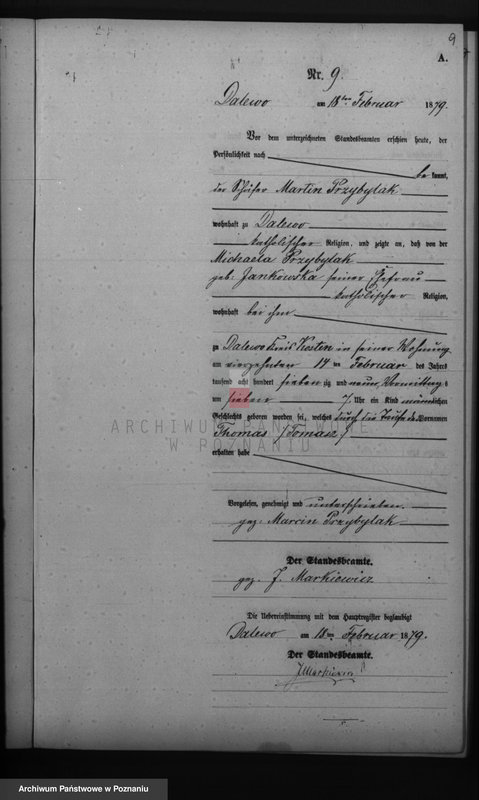 9
A.
Nr. 9.
Dalewo am 18ten Februar 1879.
Vor dem unterzeichneten Standesbeamten erschien heute, der
Persönlichkeit nach
be kannt,
der Schäfer Martin Przybylak
wohnhaft zu Dalewo
katholischer Religion, und zeigte an, daß von der
Michaela Przybylak
geb. Jankowska seiner Ehefrau
katholischer Religion,
wohnhaft bei ihm
zu Dalewo Kreis Kosten in seiner Wohnung
am vierzehnten 14 ten Februar des Jahres
tausend acht hundert sieben zig und neun Vormittag s
um sieben 7. Uhr ein Kind männlichen
Geschlechts geboren worden sei, welches durch die Taufe die Vornamen
ARCHIWUM PAŃSTWOWE
Thomas (Tomasz)
W POZNANIU
erhalten habe
Vorgelesen, genehmigt und unterschrieben.
gez. Marcin Przybylak
Der Standesbeamte.
gez. J. Markiewicz
Die Uebereinstimmung mit dem Hauptregister beglaubigt
Dalewo am 18 ten Februar 1879.
Der Standesbeamte.
J Markiewicz
Archiwum Państwowe w Poznaniu